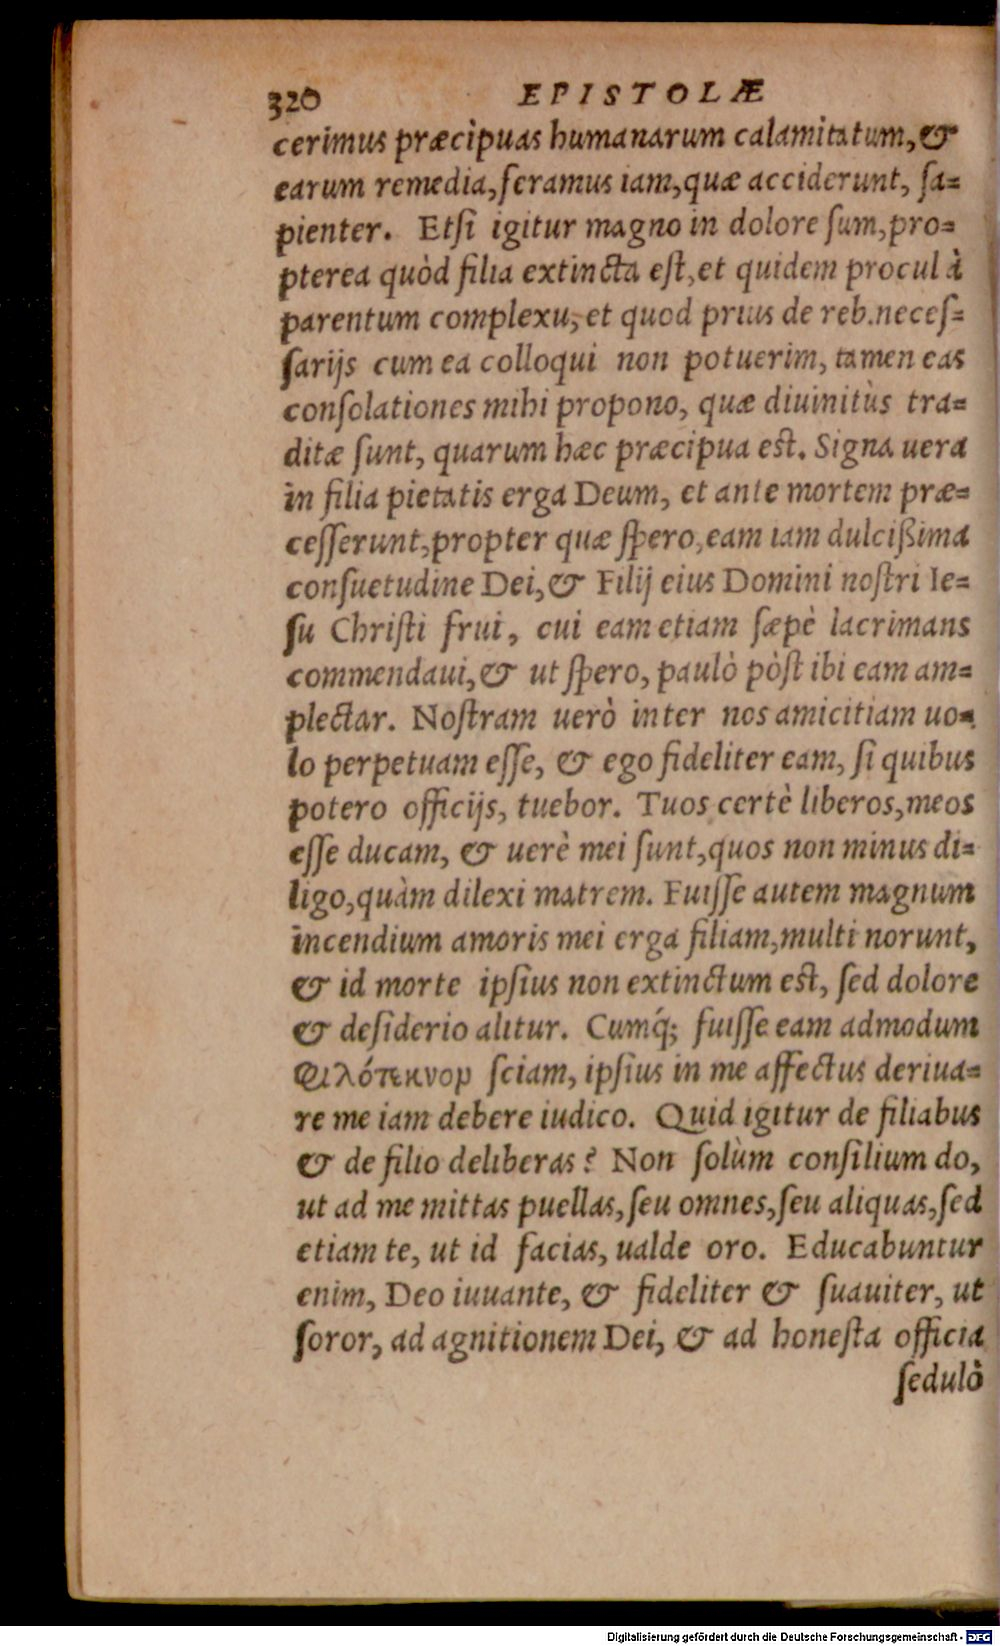 320 EPISTOLÆ
cerimus præcipuas humanarum calamitatum, &
earum remedia, feramus iam, quæ acciderunt, ſa=
pienter. Etſi igitur magno in dolore ſum, pro=
pterea quòd filia extincta eſt, et quidem procul à
parentum complexu, et quod prius de reb. neceſ=
ſarijs cum ea colloqui non potuerim, tamen eas
conſolationes mihi propono, quæ diuinitùs tra=
ditæ ſunt, quarum hæc præcipua eſt. Signa uera
in filia pietatis erga Deum, et ante mortem præ=
ceſſerunt, propter quæ ſpero, eam iam dulcißima
conſuetudine Dei, & Filij eius Domini noſtri Ie=
ſu Chriſti frui, cui eam etiam ſæpè lacrimans
commendaui, & ut ſpero, paulò pòſt ibi eam am=
plectar. Noſtram uerò inter nos amicitiam uo=
lo perpetuam eſſe, & ego fideliter eam, ſi quibus
potero officijs, tuebor. Tuos certè liberos, meos
eſſe ducam, & uerè mei ſunt, quos non minus di=
ligo, quàm dilexi matrem. Fuiſſe autem magnum
incendium amoris mei erga filiam, multi norunt,
& id morte ipſius non extinctum eſt, ſed dolore
& deſiderio alitur. Cumq́; fuiſſe eam admodum
Φιλότεκνον ſciam, ipſius in me affectus deriua=
re me iam debere iudico. Quid igitur de filiabus
& de filio deliberas? Non ſolùm conſilium do,
ut ad me mittas puellas, ſeu omnes, ſeu aliquas, ſed
etiam te, ut id facias, ualde oro. Educabuntur
enim, Deo iuuante, & fideliter & ſuauiter, ut
ſoror, ad agnitionem Dei, & ad honeſta officia
ſedulò
Digitalisierung gefördert durch die Deutsche Forschungsgemeinschaft - DFG